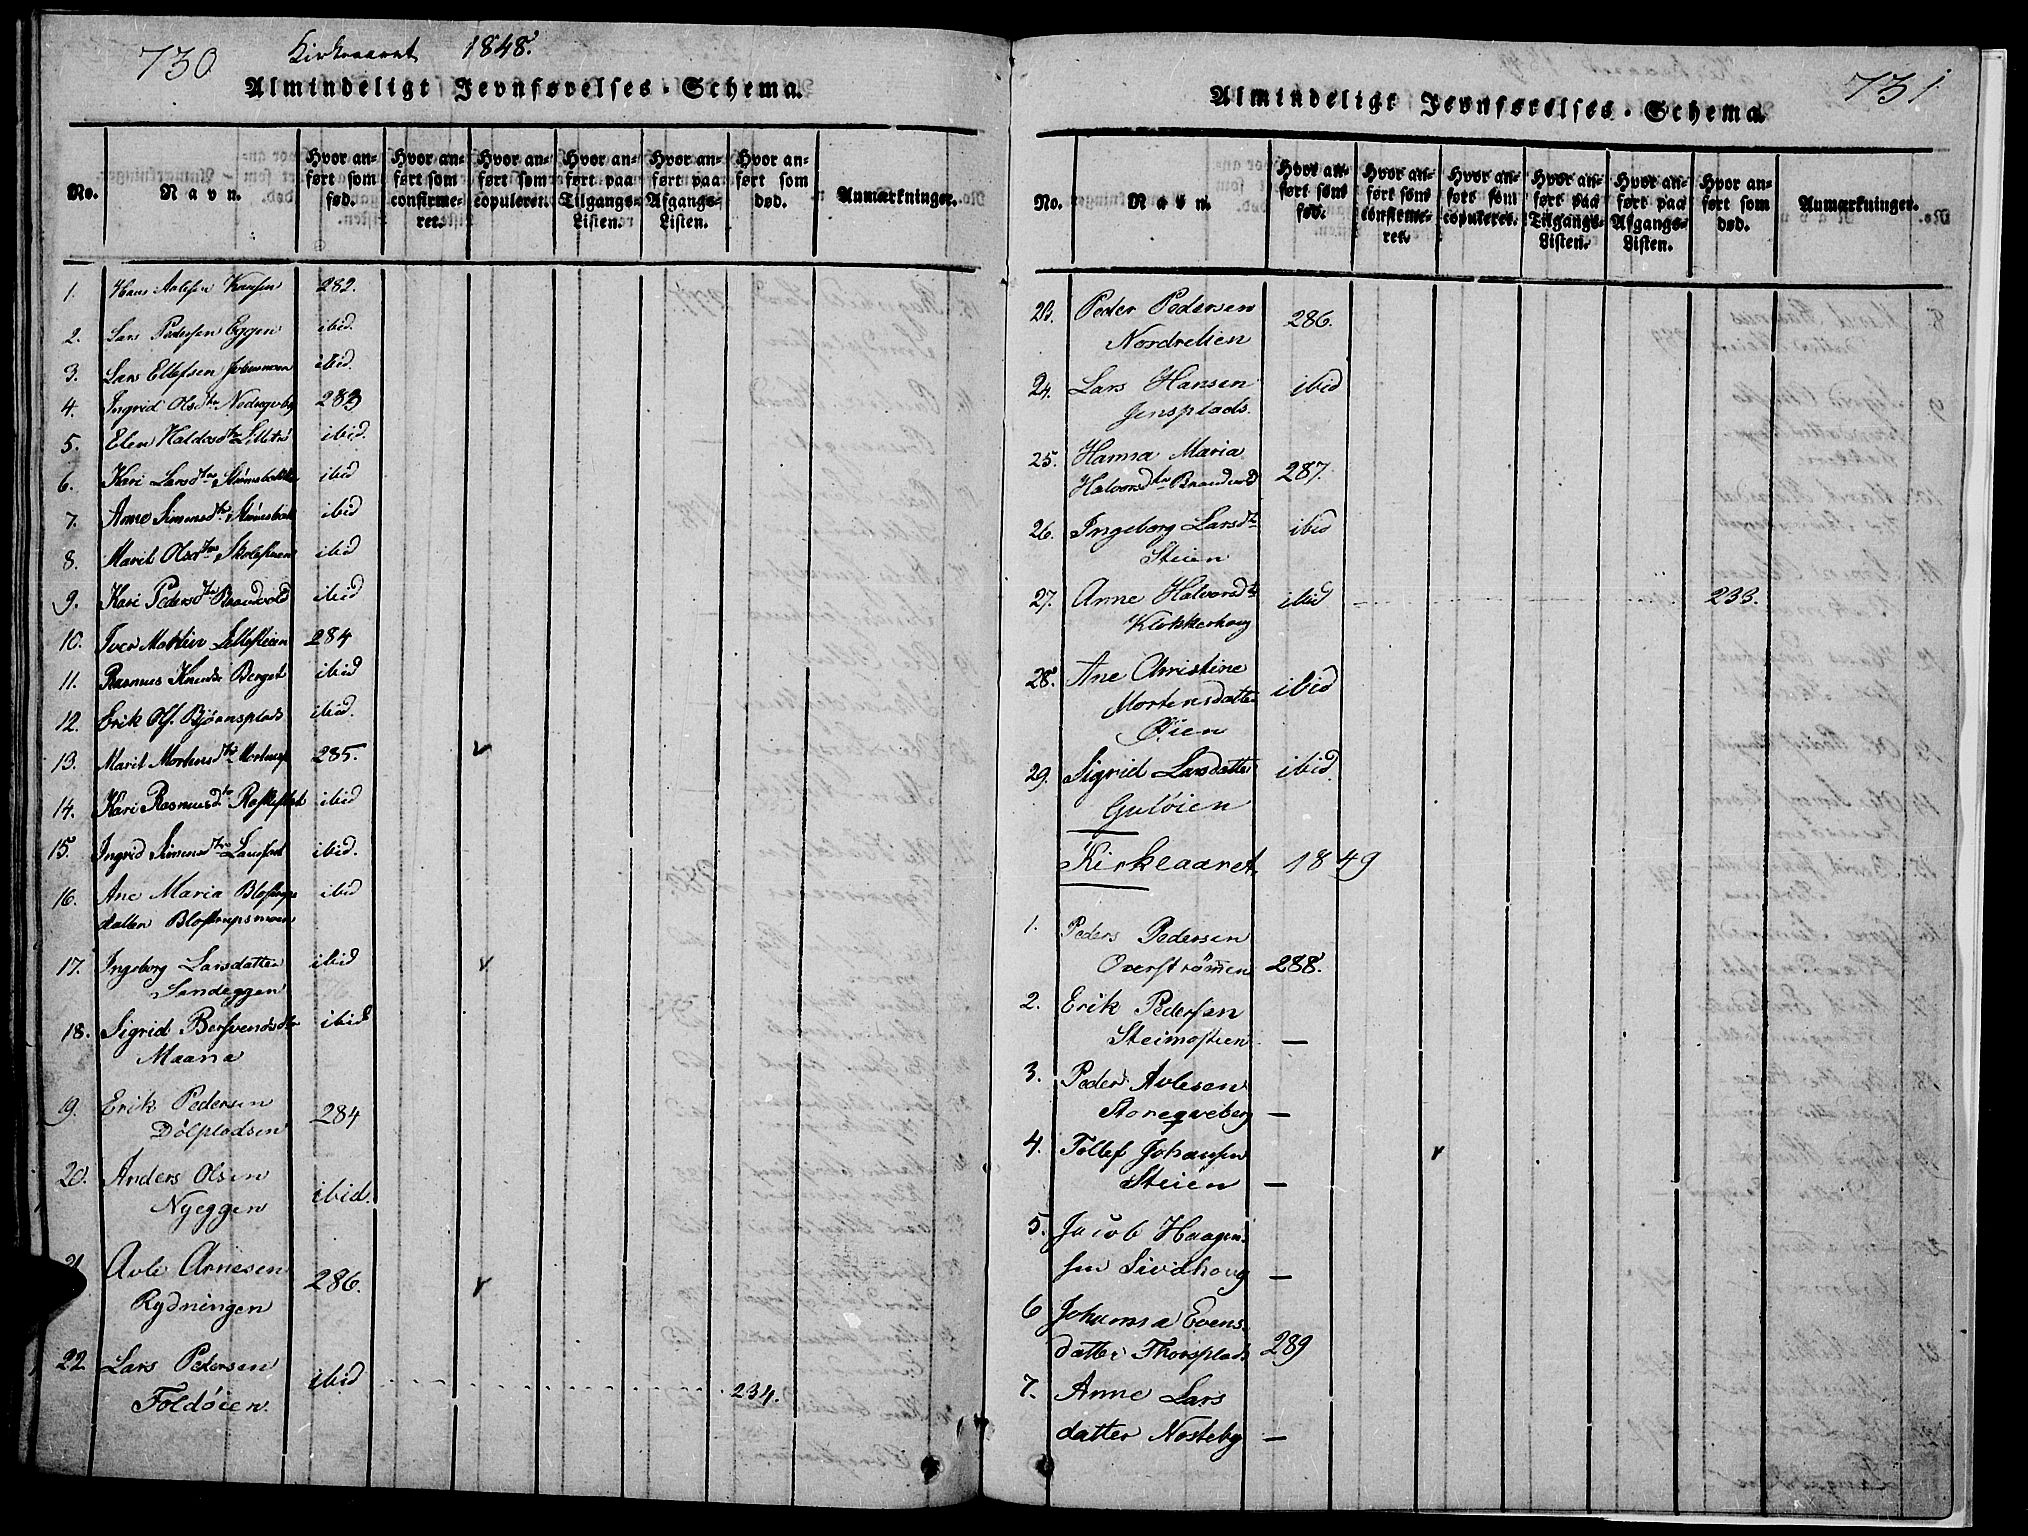 730
Kirkeaaret 1848.
Almindeligt Jevnførelses-Schema.
No.
Navn.
Hvor an-
ført som
fød.
Hvor an-
ført som
confirme-
ret.
Hvor an-
ført som
copuleret.
Hvor an-
ført paa
Tilgangs-
Listen.
Hvor an-
ført paa
Afgangs-
Listen.
Hvor an-
ført som
død.
Anmærkninger.
1. Hans 282.
2. Lars Pedersen Eggen ibid.
3. Lars Ellefsen ibid.
4. Ingrid Olsdtr 283
5. Elen ibid.
6. Kari Larsdtr ibid
7. Anne Simensdtr ibid
8. Marit Olsdtr ibid
9. Kari Pedersdtr Brandvold ibid
10. Iver Lillesteien 284
11. Rasmus Knudsn Berget ibid
12. Erik Ols. Bjørnsplads ibid.
13. Marit Mortensdtr 285. v
14. Kari Rasmusdtr ibid
15. Ingrid Simensdtr ibid.
16. Ane Maria ibid
datter
17. Ingeborg Larsdatter ibid v
Sandeggen
18. Sigrid ibid
Maana
19. Erik Pedersen 284
Dölpladsen
20. Anders Olsen
Nyeggen ibid.
21 Avle Arnesen 286. v
Rydningen
22 Lars Pedersen
Foldøien. ibid 234.
731
Almindeligt Jevnførelses-Schema.
No.
Navn.
Hvor an-
ført som
fød.
Hvor an-
ført som
confirme-
ret.
Hvor an-
ført som
copuleret.
Hvor an-
ført paa
Tilgangs-
Listen.
Hvor an-
ført paa
Afgangs-
Listen.
Hvor an-
ført som
død.
Anmærkninger.
23. Peder Pedersen 286.
Nordrelien
24. Lars Hansen ibid
Jensplads
25. Hanna Maria
Halvorsdtr Brandvold 287.
26. Ingeborg Larsdtr ibid
Steien
27. Anne Halvorsdtr ibid 233.
Klokkerhaug
28. Ane Christine ibid
Mortensdatter
Øien
29. Sigrid Larsdatter ibid.
Guløien
Kirkeaaret. 1849
1. Peders Pedersen
Overstrømmen 288.
2. Erik Pedersen
Steimosteien —
3. Peder Avlesen
Storeqveberg —
4. Tollef Johansen v
Steien —
5. Jacob Haagen-
sen Livdhoug —
6 Johanna Evens-
datter Thorsplads 289
7. Anne Lars
datter Nosteby —